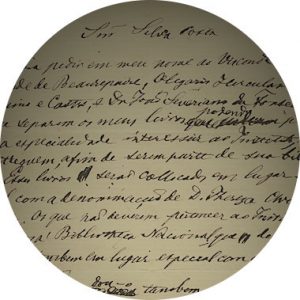 Snr Silva Costa
a pedir em meu nome ao Viscond
de de Beaurepaire, Olegario Herculan
ino e Castro, e Dr João Severiano da Fonse
e separem os meus livros que
possão
a especialidade interessar ao Institut
treguem afim de serem parte de sua
livros serão collocados em lugar
com a denominação de D. Thereza Chri
Os que não deverem pertencer ao Inst
Bibliotheca Nacional que
tambem em lugar especial com a
Dou
tambem